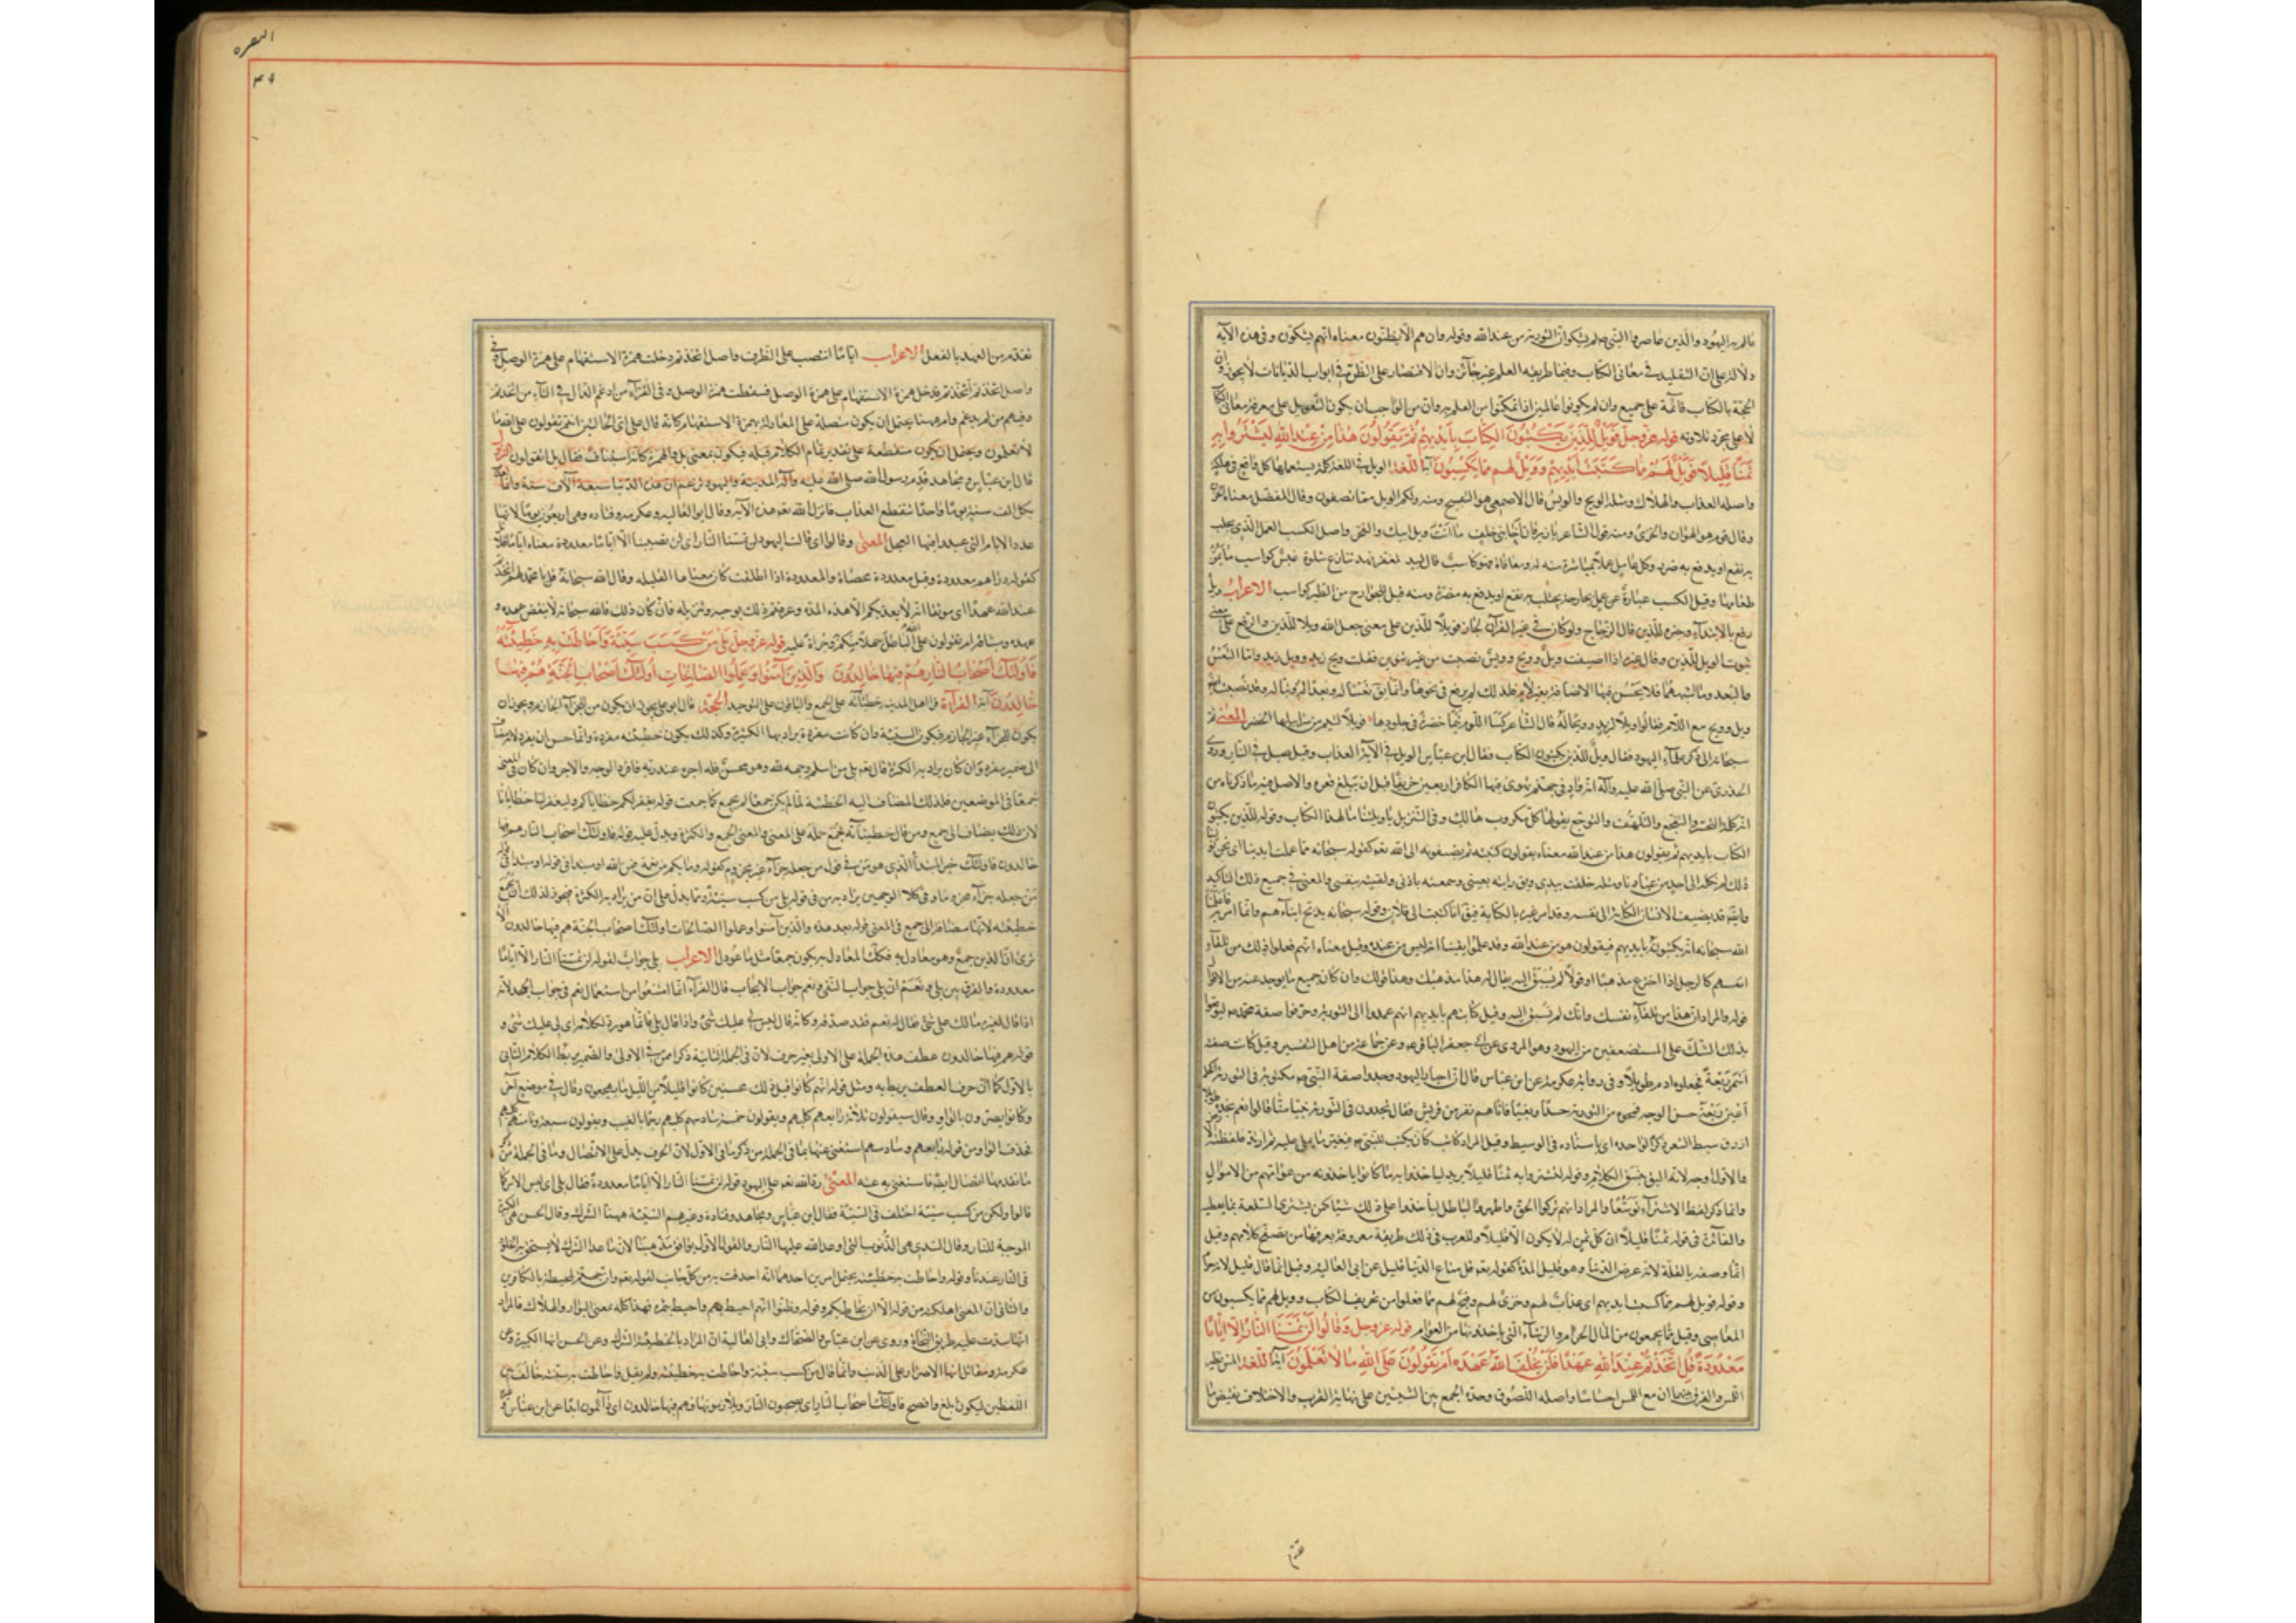 قاله به اليهود والذين عاصروا النبي لم يشكوا ان التورية من عند الله وقوله وان هم الا يظنون معناه انهم يشكون وفي هذه الآية
دلالة على ان التقليد في معاني الكتاب وفيما طريقه العلم غير جائز وان الاقتصار على الظن في ابواب الديانات لا يجوز وان
الحجة بالكتاب قائمة على جميع وان لم يكونوا عالمين اذا تمكنوا من العلم به وان من الواجب ان يكون التعويل على معرفة معاني الكتاب
لا على مجرد تلاوته قوله عز وجل فَوَيْلٌ لِلَّذِينَ يَكْتُبُونَ الْكِتَابَ بِأَيْدِيهِمْ ثُمَّ يَقُولُونَ هٰذَا مِنْ عِنْدِ اللهِ لِيَشْتَرُوا بِهِ
ثَمَنًا قَلِيلًا فَوَيْلٌ لَهُمْ مِمَّا كَتَبَتْ أَيْدِيهِمْ وَوَيْلٌ لَهُمْ مِمَّا يَكْسِبُونَ آية اللغة الويل في اللغة كلمة يستعملها كل واقع في هلكة
واصله العذاب والهلاك ومثله الويح والويس قال الاصمعي هو التقبيح ومنه ولكم الويل مما تصفون وقال المفضل معناه الحزن
وقال قوم هو الهوان والخزي ومنه قول الشاعر يا زبرقان اخا بني خلف ما انت ويل ابيك والفخر واصل الكسب العمل الذي يجلب
به نفع او يدفع به ضرر وكل عامل عملا بمباشرة منه له ومعاناة فهو كاسب قال لبيد لمعفر قهد تنازع شلوه غبس كواسب ما يمن
طعامها وقيل الكسب عبارة عن عمل بجارحة يجتلب به نفع او يدفع به مضرة ومنه قيل للجوارح من الطير كواسب الاعراب ويل
رفع بالابتداء وخبره للذين قال الزجاج ولو كان في غير القرآن لجاز فويلا للذين على معنى جعل الله ويلا للذين والرفع على معنى
ثبوت الويل للذين وقال غيره اذا اضيفت ويل وويح وويس نصبت من غير تنوين فقلت ويح زيد وويل زيد واما التعس
والبعد وما اشبههما فلا يحسن فيها الاضافة بغير لام فلذلك لم يرفع في نحوها وانما يق تعسا له وبعدا له وتبا له وقد نصب
ويل وويح مع اللام فقالوا ويلا لزيد وويحا له قال الشاعر كسا اللوم تيما خضرة في جلودها فويلا لتيم من سرابيلها الخضر المعنى ثم عاد
سبحانه الى ذكر علماء اليهود فقال ويل للذين يكتبون الكتاب فقال ابن عباس الويل في الآية العذاب وقيل جبل في النار وروى
الخدري عن النبي صلى الله عليه وآله انه واد في جهنم يهوي فيها الكافر اربعين خريفا قبل ان يبلغ قعره والاصل فيه ما ذكرناه من
انه كلمة التحسر والتفجع والتلهف والتوجع يقولها كل مكروب هالك وفي التنزيل يا ويلتنا ما لهذا الكتاب وقوله للذين يكتبون
الكتاب بايديهم ثم يقولون هذا من عند الله معناه يقولون كتبته ثم يضيفونه الى الله تع كقوله سبحانه مما عملت ايدينا اي نحن تولينا
ذلك لم نكله الى احد من عبادنا ومثله خلقت بيدي ويق رايته بعيني وسمعته باذني ولقيته بنفسي والمعنى في جميع ذلك التاكيد
الله سبحانه انهم يكتبونه بايديهم فيقولون هو من عند الله وقد علموا يقينا انه ليس من عنده وقيل معناه انهم فعلوا ذلك من تلقاء
انفسهم كالرجل اذا اخترع مذهبا او قولا لم يسبق اليه يقال له هذا مذهبك وهذا قولك وان كان جميع ما يوجد عنه من الاقوال
قوله والمراد ان هذا من تلقاء نفسك وانك لم تسبق اليه وقيل كتابتهم بايديهم انهم عمدوا الى التورية وحرفوا صفة محمد ص ليوقعوا
بذلك الشك على المستضعفين من اليهود وهو المروي عن ابي جعفر الباقر ع وعن جماعة من اهل التفسير وقيل كانت صفته
اسمر ربعة فجعلوه ادم طويلا وفي رواية عكرمة عن ابن عباس قال ان احبار اليهود وجدوا صفة النبي ص مكتوبة في التورية اكحل
اعين ربعة حسن الوجه فمحوه من التورية حسدا وبغيا فاتاهم نفر من قريش فقال تجدون في التورية نبيا منا قالوا نعم نجده طويلا
ازرق سبط الشعر ذكره الواحدي باسناده في الوسيط وقيل المراد كاتب كان يكتب للنبي ص فيغير ما يملي عليه ثم ارتد فلفظته الارض
والاول اوجه لانه اليق بنسق الكلام وقوله ليشتروا به ثمنا قليلا يريد ليأخذوا به ما كانوا ياخذونه من عوامهم من الاموال
وانما ذكر لفظ الاشتراء توسعا والمراد انهم تركوا الحق واظهروا الباطل ليأخذوا على ذلك شيئا كمن يشتري السلعة بما يعطيه
والفائدة في قوله ثمنا قليلا ان كل ثمن له لا يكون الا قليلا وللعرب في ذلك طريقة معروفة يعرفها من تصفح كلامهم وقيل
انما وصفه بالقلة لانه عرض الدنيا وهو قليل المدة كقوله تع قل متاع الدنيا قليل عن ابي العالية وقيل انما قال قليل لانه حرام
وقوله فويل لهم مما كتبت ايديهم اي عذاب لهم وخزي لهم وقبح لهم مما فعلوا من تحريف الكتاب وويل لهم مما يكسبون من
المعاصي وقيل مما يجمعون من المال الحرام والرشاء التي ياخذونها من العوام قوله عز وجل وَقَالُوا لَنْ تَمَسَّنَا النَّارُ إِلَّا أَيَّامًا
مَعْدُودَةً قُلْ أَتَّخَذْتُمْ عِنْدَ اللهِ عَهْدًا فَلَنْ يُخْلِفَ اللهُ عَهْدَهُ أَمْ تَقُولُونَ عَلَى اللهِ مَا لَا تَعْلَمُونَ آية اللغة المس نظير
اللمس والفرق بينهما ان مع اللمس احساسا واصله اللصوق وحده الجمع بين الشيئين على نهاية القرب والاخلاف نقيض ما
تقدم
البقره
تقدم من العهد بالفعل الاعراب اياما انتصب على الظرف واصل اتخذتم دخلت همزة الاستفهام على همزة الوصل
واصل اتخذتم أاتخذتم دخل همزة الاستفهام على همزة الوصل فسقطت همزة الوصل وفي القراء من ادغم الذال في التاء من اتخذتم
ومنهم من لم يدغم وام ههنا يحتمل ان يكون متصلة على المعادلة بهمزة الاستفهام كانه قال على اي الحالتين انتم تقولون على الله ما
لا تعلمون ويحتمل ان يكون منقطعة على تقدير تمام الكلام قبله فيكون بمعنى بل والهمزة كانه استيناف فقال بل اتقولون النزول
قال ابن عباس ومجاهد قدم رسول الله صلى الله عليه وآله المدينة واليهود تزعم ان هذه الدنيا سبعة آلاف سنة وانما
بكل الف سنة يوما واحدا ثم ينقطع العذاب فانزل الله تع هذه الآية وقال ابو العالية وعكرمة وقتاده وهي اربعون يوما لانها
عدد الايام التي عبدوا فيها العجل المعنى وقالوا اي قالت اليهود لن تمسنا النار اي لن تصيبنا الا اياما معدودة معناه اياما قلائل
كقوله دراهم معدودة وقيل معدودة محصاة والمعدودة اذا اطلقت كان معناها القليلة وقال الله سبحانه قل يا محمد لهم اتخذتم
عند الله عهدا اي موثقا انه لا يعذبكم الا هذه المدة وعرفتم ذلك بوحيه وتنزيله فان كان ذلك فالله سبحانه لا ينقض عهده و
عهده وميثاقه ام تقولون على الله الباطل جهلا منكم وجراة عليه قوله عز وجل بَلَى مَنْ كَسَبَ سَيِّئَةً وَأَحَاطَتْ بِهِ خَطِيئَتُهُ
فَأُولٰئِكَ أَصْحَابُ النَّارِ هُمْ فِيهَا خَالِدُونَ وَالَّذِينَ آمَنُوا وَعَمِلُوا الصَّالِحَاتِ أُولٰئِكَ أَصْحَابُ الْجَنَّةِ هُمْ فِيهَا
خَالِدُونَ آية القراءة قرأ اهل المدينة خطيئاته على الجمع والباقون على التوحيد الحجة قال ابو علي يجوز ان يكون من للجزاء الجازم ويجوز ان
يكون للجزاء غير الجازم فيكون السيئة وان كانت مفردة يراد بها الكثرة وكذلك يكون خطيئته مفردة وانما حسن ان يفرد لانه مضاف
الى ضمير مفرد وان كان يراد به الكثرة قال تع بلى من اسلم وجهه لله وهو محسن فله اجره عند ربه فافرد الوجه والاجر وان كان في المعنى
جمعا في الموضعين فلذلك المضاف اليه الخطيئة لما لم يكن جمعا لم يجمع كما جمعت قوله نغفر لكم خطاياكم وليغفر لنا خطايانا
لان ذلك يضاف الى جمع ومن قال خطيئاته فجمع حمله على المعنى والمعنى الجمع والكثرة ويدل عليه قوله فاولئك اصحاب النار هم فيها
خالدون فاولئك خبر المبتدأ الذي هو من في قول من جعله جزاء غير مجزوم كقوله وما بكم من نعمة فمن الله او مبتدا في قوله
من جعله جزاء مجزوما وفي كلا الوجهين يراد به من في قوله بلى من كسب سيئة ومما يدل على ان من يراد به الكثرة فيجوز لذلك ان تجمع
خطيئته لانها مضافة الى جمع في المعنى قوله بعد هذه والذين آمنوا وعملوا الصالحات اولئك اصحاب الجنة هم فيها خالدون الا
ترى ان الذين جمع وهو معادل به فكذلك المعادل به يكون جمعا مثل ما عودل الاعراب بلى جواب لقوله لن تمسنا النار الا اياما
معدودة والفرق بين بلى ونعم ان بلى جواب النفي ونعم جواب الايجاب قال الفراء انما امتنعوا من استعمال نعم في جواب الجحد لانه
اذا قال لغيره مالك علي شيء فقال له نعم فقد صدقه وكانه قال ليس لي عليك شيء واذا قال بلى فانما هو رد لكلامه اي لي عليك شيء و
قوله هم فيها خالدون عطف هذه الجملة على الاولى بغير حرف لان في الجملة الثانية ذكرا ممن في الاولى والضمير يربط الكلام الثاني
بالاول كما ان حرف العطف يربط به ومثل قوله انهم كانوا قبل ذلك محسنين كانوا قليلا من الليل ما يهجعون وقال في موضع آخر
وكانوا يصرون بالواو وقال سيقولون ثلاثة رابعهم كلبهم ويقولون خمسة سادسهم كلبهم رجما بالغيب ويقولون سبعة وثامنهم كلبهم
فحذف الواو من قوله رابعهم وسادسهم استغنى عنها بما في الجملة من ذكر ما في الاول لان الحرف يدل على الاتصال وما في الجملة من ذكر
ما تقدمها اتصال ايضا فاستغني به عنه المعنى رد الله تع على اليهود قوله لن تمسنا النار الا اياما معدودة فقال بلى اي ليس الامر كما
قالوا ولكن من كسب سيئة اختلف في السيئة فقال ابن عباس ومجاهد وقتادة وغيرهم السيئة ههنا الشرك وقال الحسن هي الكبيرة
الموجبة للنار وقال السدي هي الذنوب التي اوعد الله عليها النار والقول الاول يوافق مذهبنا لان ما عدا الشرك لا يستحق به الخلود
في النار عندنا وقوله واحاطت به خطيئته يحتمل امرين احدهما انه احدقت به من كل جانب كقوله تع وان جهنم لمحيطة بالكافرين
والثاني ان المعنى اهلكته من قوله الا ان يحاط بكم وقوله وظنوا انهم احيط بهم واحيط بثمره فهذا كله بمعنى البوار والهلاك فالمراد
انها سدت عليه طريق النجاة وروي عن ابن عباس والضحاك وابي العالية ان المراد بالخطيئة الشرك وعن الحسن انها الكبيرة وعن
عكرمة ومقاتل انها الاصرار على الذنب وانما قال من كسب سيئة واحاطت به خطيئته ولم يقل واحاطت به سيئته خالف بين
اللفظين ليكون ابلغ وافصح فاولئك اصحاب النار اي يصحبون النار ويلازمونها وهم فيها خالدون اي دائمون ابدا عن ابن عباس و